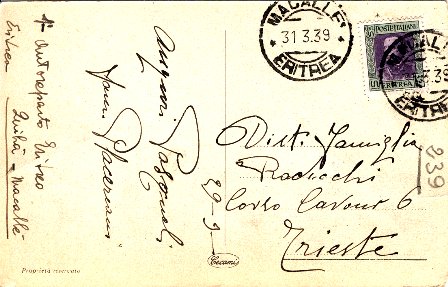 1º Autoreparto Eritreo
Quihà - Macallè
Eritrea
Auguri Pasquali
29-3-
MACALLE'
31 3.39
ERITREA
POSTE ITALIANE
ERITREA
MACALLE'
3.39
ERITREA
Dist. Famiglia
Radicchi
Corso Cavour 6
Trieste
239
Cecami
Proprietà riservata